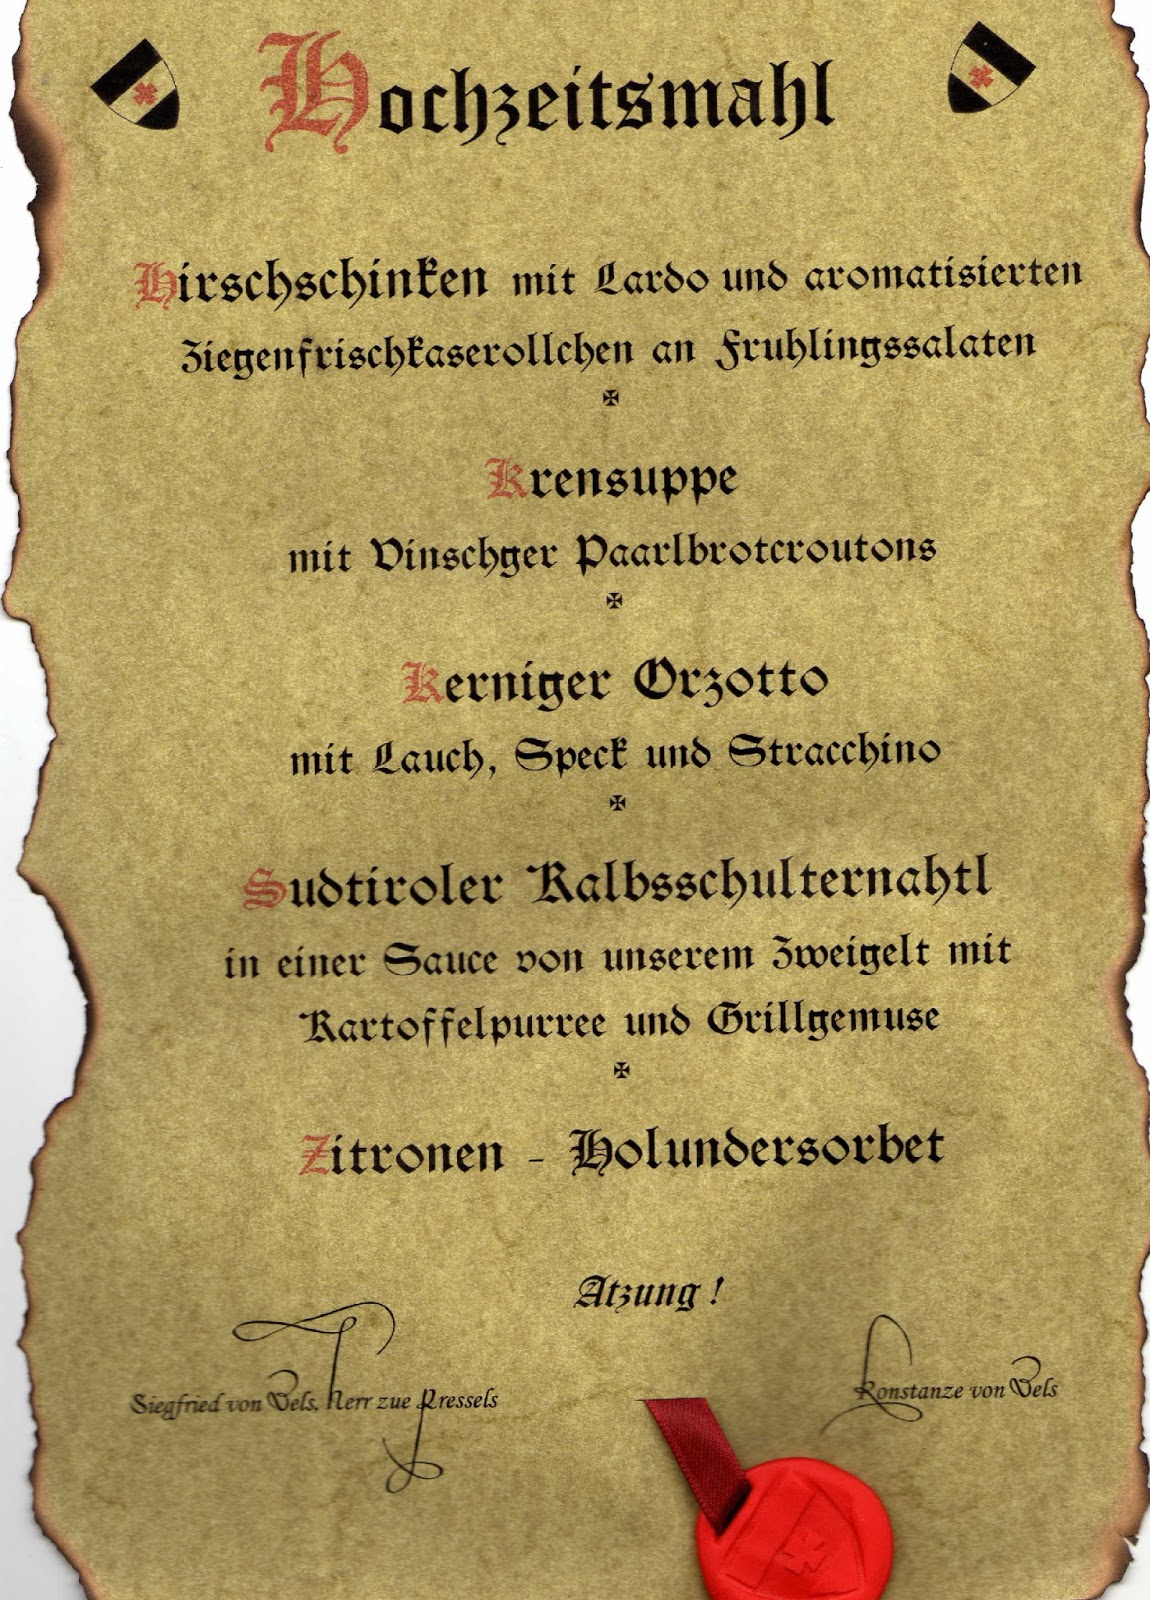 Hochzeitsmahl
Hirschschinken mit Lardo und aromatisierten
Ziegenfrischkaserollchen an Fruhlingssalaten
Krensuppe
mit Vinschger Paarlbrotcroutons
Kerniger Orzotto
mit Lauch, Speck und Stracchino
Sudtiroler Kalbsschulternahtl
in einer Sauce von unserem Zweigelt mit
Kartoffelpurree und Grillgemuse
Zitronen - Holundersorbet
Atzung !
Siegfried von Vels, Herr zue Pressels
Konstanze von Vels